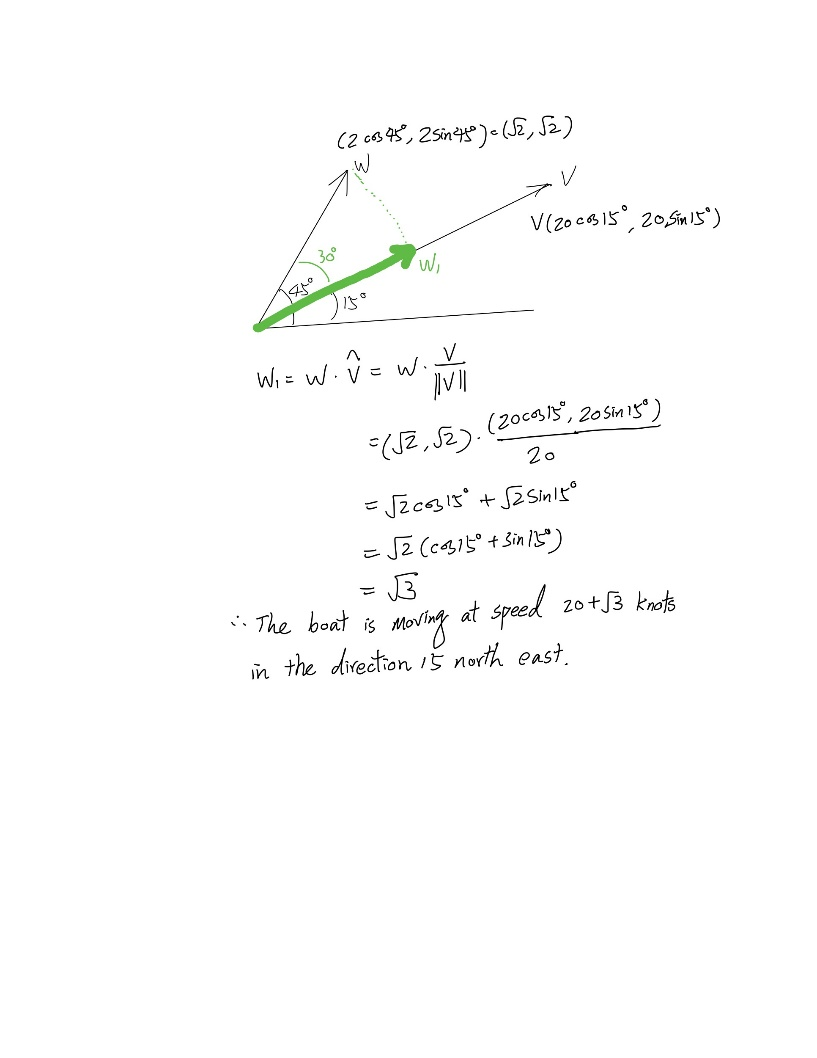 (2 cos 45°, 2 sin 45°) = (√2, √2)
W
V
V(20 cos 15°, 20 sin 15°)
30°
W₁
45°
15°
W₁ = W · V̂ = W · V/‖V‖
= (√2, √2) · (20 cos 15°, 20 sin 15°)/20
= √2 cos 15° + √2 sin 15°
= √2 (cos 15° + sin 15°)
= √3
∴ The boat is moving at speed 20+√3 knots
in the direction 15 north east.